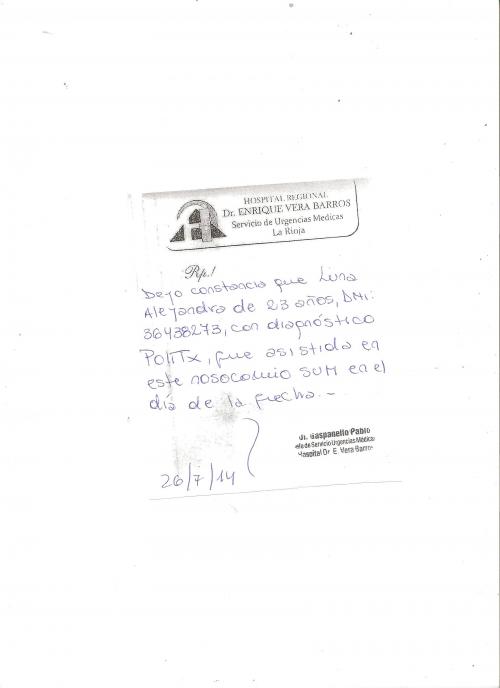 HOSPITAL REGIONAL
Dr. ENRIQUE VERA BARROS
Servicio de Urgencias Medicas
La Rioja
Rp.!
Dejo constancia que Luna
Alejandra de 23 años, DNI:
36438273, con diagnóstico
PoliTx, fue asistida en
este nosocomio SUM en el
día de la fecha.-
Dr. Gaspanello Pablo
Jefe de Servicio Urgencias Médicas
Hospital Dr. E. Vera Barros
26/7/14